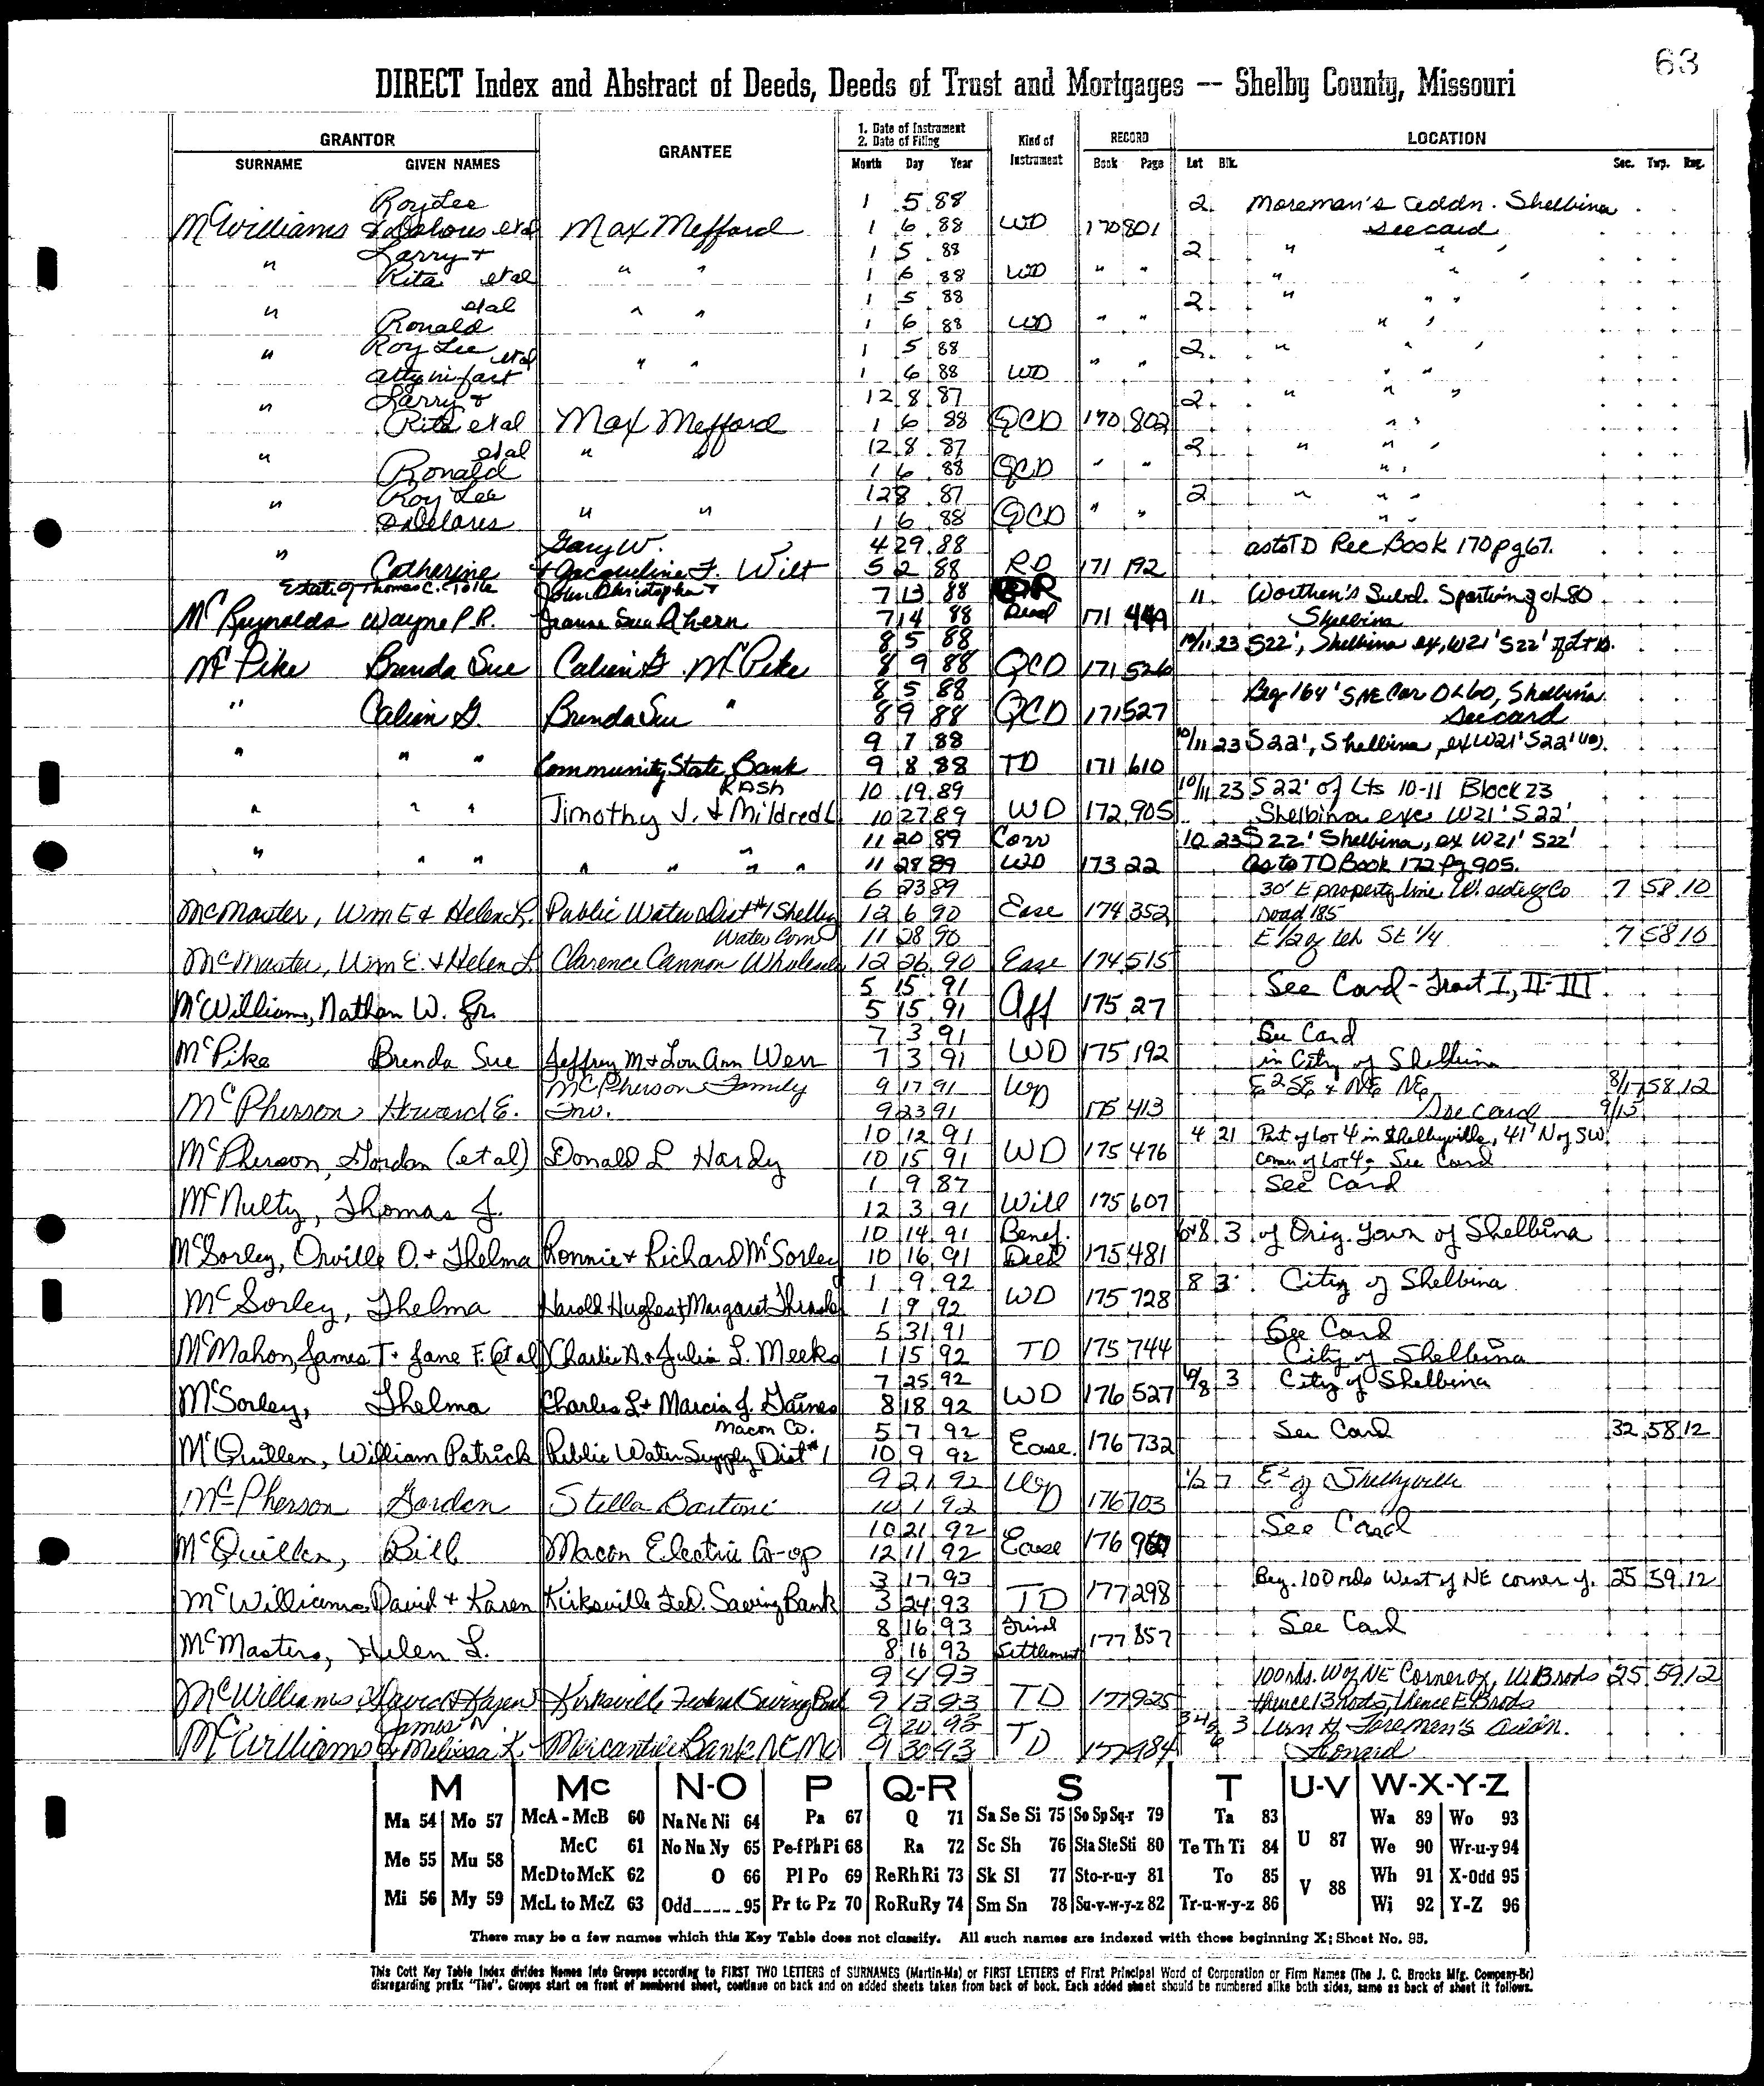 63
DIRECT Index and Abstract of Deeds, Deeds of Trust and Mortgages -- Shelby County, Missouri
GRANTOR GRANTEE 1. Date of Instrument 2. Date of Filing Kind of Instrument RECORD LOCATION
SURNAME GIVEN NAMES Month Day Year Book Page Lot Blk. Sec. Twp. Rng.
Roy Lee 1 5 88 2 Moreman's Addn. Shelbina
McWilliams & Delores etal Max Mefford 1 6 88 WD 170 801 see card
Larry + 1 5 88 2 " " "
" Rita etal " " 1 6 88 WD " " " " "
etal 1 5 88 2 " " "
" Ronald " " 1 6 88 WD " " " "
Roy Lee 1 5 88 2 " " "
" atty in fact etal " " 1 6 88 WD " " " "
Larry + 12 8 87 2 " " "
" Rita etal Max Mefford 1 6 88 QCD 170 802 " "
etal 12 8 87 2 " " "
" Ronald " " 1 6 88 QCD " " " "
Roy Lee 12 8 87 2 " " "
" & Delores " " 1 6 88 QCD " " " "
Gary W. 4 29 88 as to TD Rec Book 170 pg 67.
" Catherine + Jacqueline F. Wilt 5 2 88 RD 171 192
Estate of Thomas C. Tolle John Christopher + 7 13 88 PR 11 Worthen's Subd. S portion of OL 80
McReynolds Wayne P.R. Jeanne Sue Ahern 7 14 88 Deed 171 449 Shelbina
8 5 88 10/11 23 S22', Shelbina ex, W21' S22' of Lt 10.
McPike Brenda Sue Calvin G. McPike 8 9 88 QCD 171 526
8 5 88 Beg 164' S NE Cor OL 60, Shelbina
" Calvin G. Brenda Sue " 8 9 88 QCD 171 527 see card
9 7 88 10/11 23 S22', Shelbina, ex W21' S22' (10).
" " " Community State Bank 9 8 88 TD 171 610
RASH 10 19 89 10/11 23 S 22' of Lts 10-11 Block 23
" " " Timothy J. & Mildred L 10 27 89 WD 172 905 Shelbina exc W21' S22'
11 20 89 Corr 10 23 S22' Shelbina, ex W21' S22'
" " " " " " " 11 28 89 WD 173 22 as to TD Book 172 Pg 905.
6 23 89 30' E property line W. side of Co 7 58 10
McMaster, Wm E & Helen L. Public Water Dist #1 Shelby 12 6 90 Ease 174 352 road 185
Water Com 11 28 90 E 1/2 of SE 1/4 7 58 10
McMaster, Wm E. & Helen L Clarence Cannon Wholesale 12 26 90 Ease 174 515
5 15 91 See Card - Tract I, II - III
McWilliams, Nathan W. Jr. 5 15 91 Aff 175 27
7 3 91 See Card
McPike Brenda Sue Jeffrey M & Lou Ann Wen 7 3 91 WD 175 192 in City of Shelbina
McPherson Family 9 17 91 WD E2 SE & NE NE 8/17 58 12
McPherson Howard E. Inv. 9 23 91 175 413 See card 9/15
10 12 91 4 21 Part of Lot 4 in Shelbyville, 41' N of SW
McPherson, Gordon (et al) Donald L Hardy 10 15 91 WD 175 476 corner of Lot 4, See Card
1 9 87 See Card
McNulty, Thomas J. 12 3 91 Will 175 607
10 14 91 Benef. 6+8 3 of Orig. Town of Shelbina
McSorley, Orville O. + Thelma Ronnie + Richard McSorley 10 16 91 Deed 175 481
1 9 92 8 3 City of Shelbina
McSorley, Thelma Harold Hughes & Margaret Thrasher 1 9 92 WD 175 728
5 31 91 See Card
McMahon, James T + Jane F. (et al) Charlie A. & Julia L. Meeks 1 15 92 TD 175 744 City of Shelbina
7 25 92 6/8 3 City of Shelbina
McSorley, Thelma Charles L + Marcia J. Gaines 8 18 92 WD 176 527
Macon Co. 5 7 92 See Card 32 58 12
McQuillen, William Patrick Public Water Supply Dist #1 10 9 92 Ease. 176 732
9 21 92 WD 1/2 7 E2 of Shelbyville
McPherson Gordon Stella Bartoni 10 1 92 176 703
10 21 92 See Card
McQuillen, Bill Macon Electric Co-op 12 11 92 Ease 176
3 17 93 Beg. 100 rds West of NE corner of. 25 59 12
McWilliams David + Karen Kirksville Fed. Saving Bank 3 24 93 TD 177 298
8 16 93 Final See Card
McMasters, Helen L. 8 16 93 Settlement 177 857
9 4 93 100 rds. W of NE Corner of, W 13 rods 25 59 12
McWilliams David & Karen Kirksville Federal Saving Bank 9 13 93 TD 177 925 thence 13 rods, thence E 13 rods
James N 9 20 93 3 Foremen's addn.
McWilliams & Melissa K. Mercantile Bank NEMO 9 30 93 TD 177 984 Leonard
M Mc N-O P Q-R S T U-V W-X-Y-Z
Ma 54 Mo 57 McA-McB 60 Na Ne Ni 64 Pa 67 Q 71 Sa Se Si 75 So Sp Sq-r 79 Ta 83 U 87 Wa 89 Wo 93
McC 61 No Nu Ny 65 Pe-f Ph Pi 68 Ra 72 Sc Sh 76 Sta Ste Sti 80 Te Th Ti 84 We 90 Wr-u-y 94
Me 55 Mu 58 McD to McK 62 O 66 Pl Po 69 Re Rh Ri 73 Sk Sl 77 Sto-r-u-y 81 To 85 V 88 Wh 91 X-Odd 95
Mi 56 My 59 McL to McZ 63 Odd-----95 Pr to Pz 70 Ro Ru Ry 74 Sm Sn 78 Su-v-w-y-z 82 Tr-u-w-y-z 86 Wi 92 Y-Z 96
There may be a few names which this Key Table does not classify. All such names are indexed with those beginning X; Sheet No. 95.
This Cott Key Table Index divides Names Into Groups according to FIRST TWO LETTERS of SURNAMES (Martin-Ma) or FIRST LETTERS of First Principal Word of Corporation or Firm Names (The J. C. Brocks Mfg. Company-Br)
disregarding prefix "The". Groups start on front of numbered sheet, continue on back and on added sheets taken from back of book. Each added sheet should be numbered alike both sides, same as back of sheet it follows.